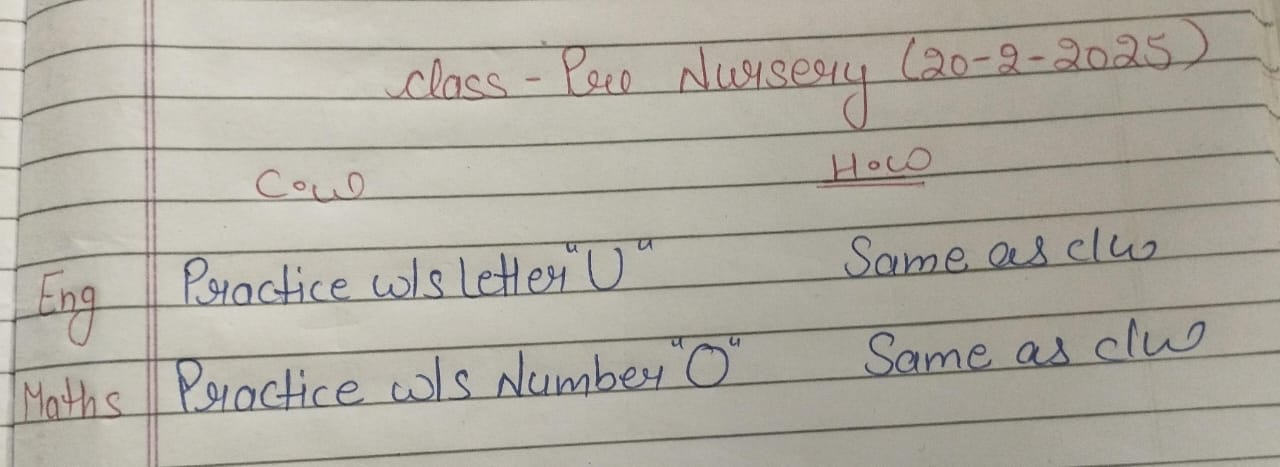 class - Pre Nursery (20-2-2025)
C.w H.w
Eng Practice w/s letter "U" Same as c/w
Maths Practice w/s Number "0" Same as c/w